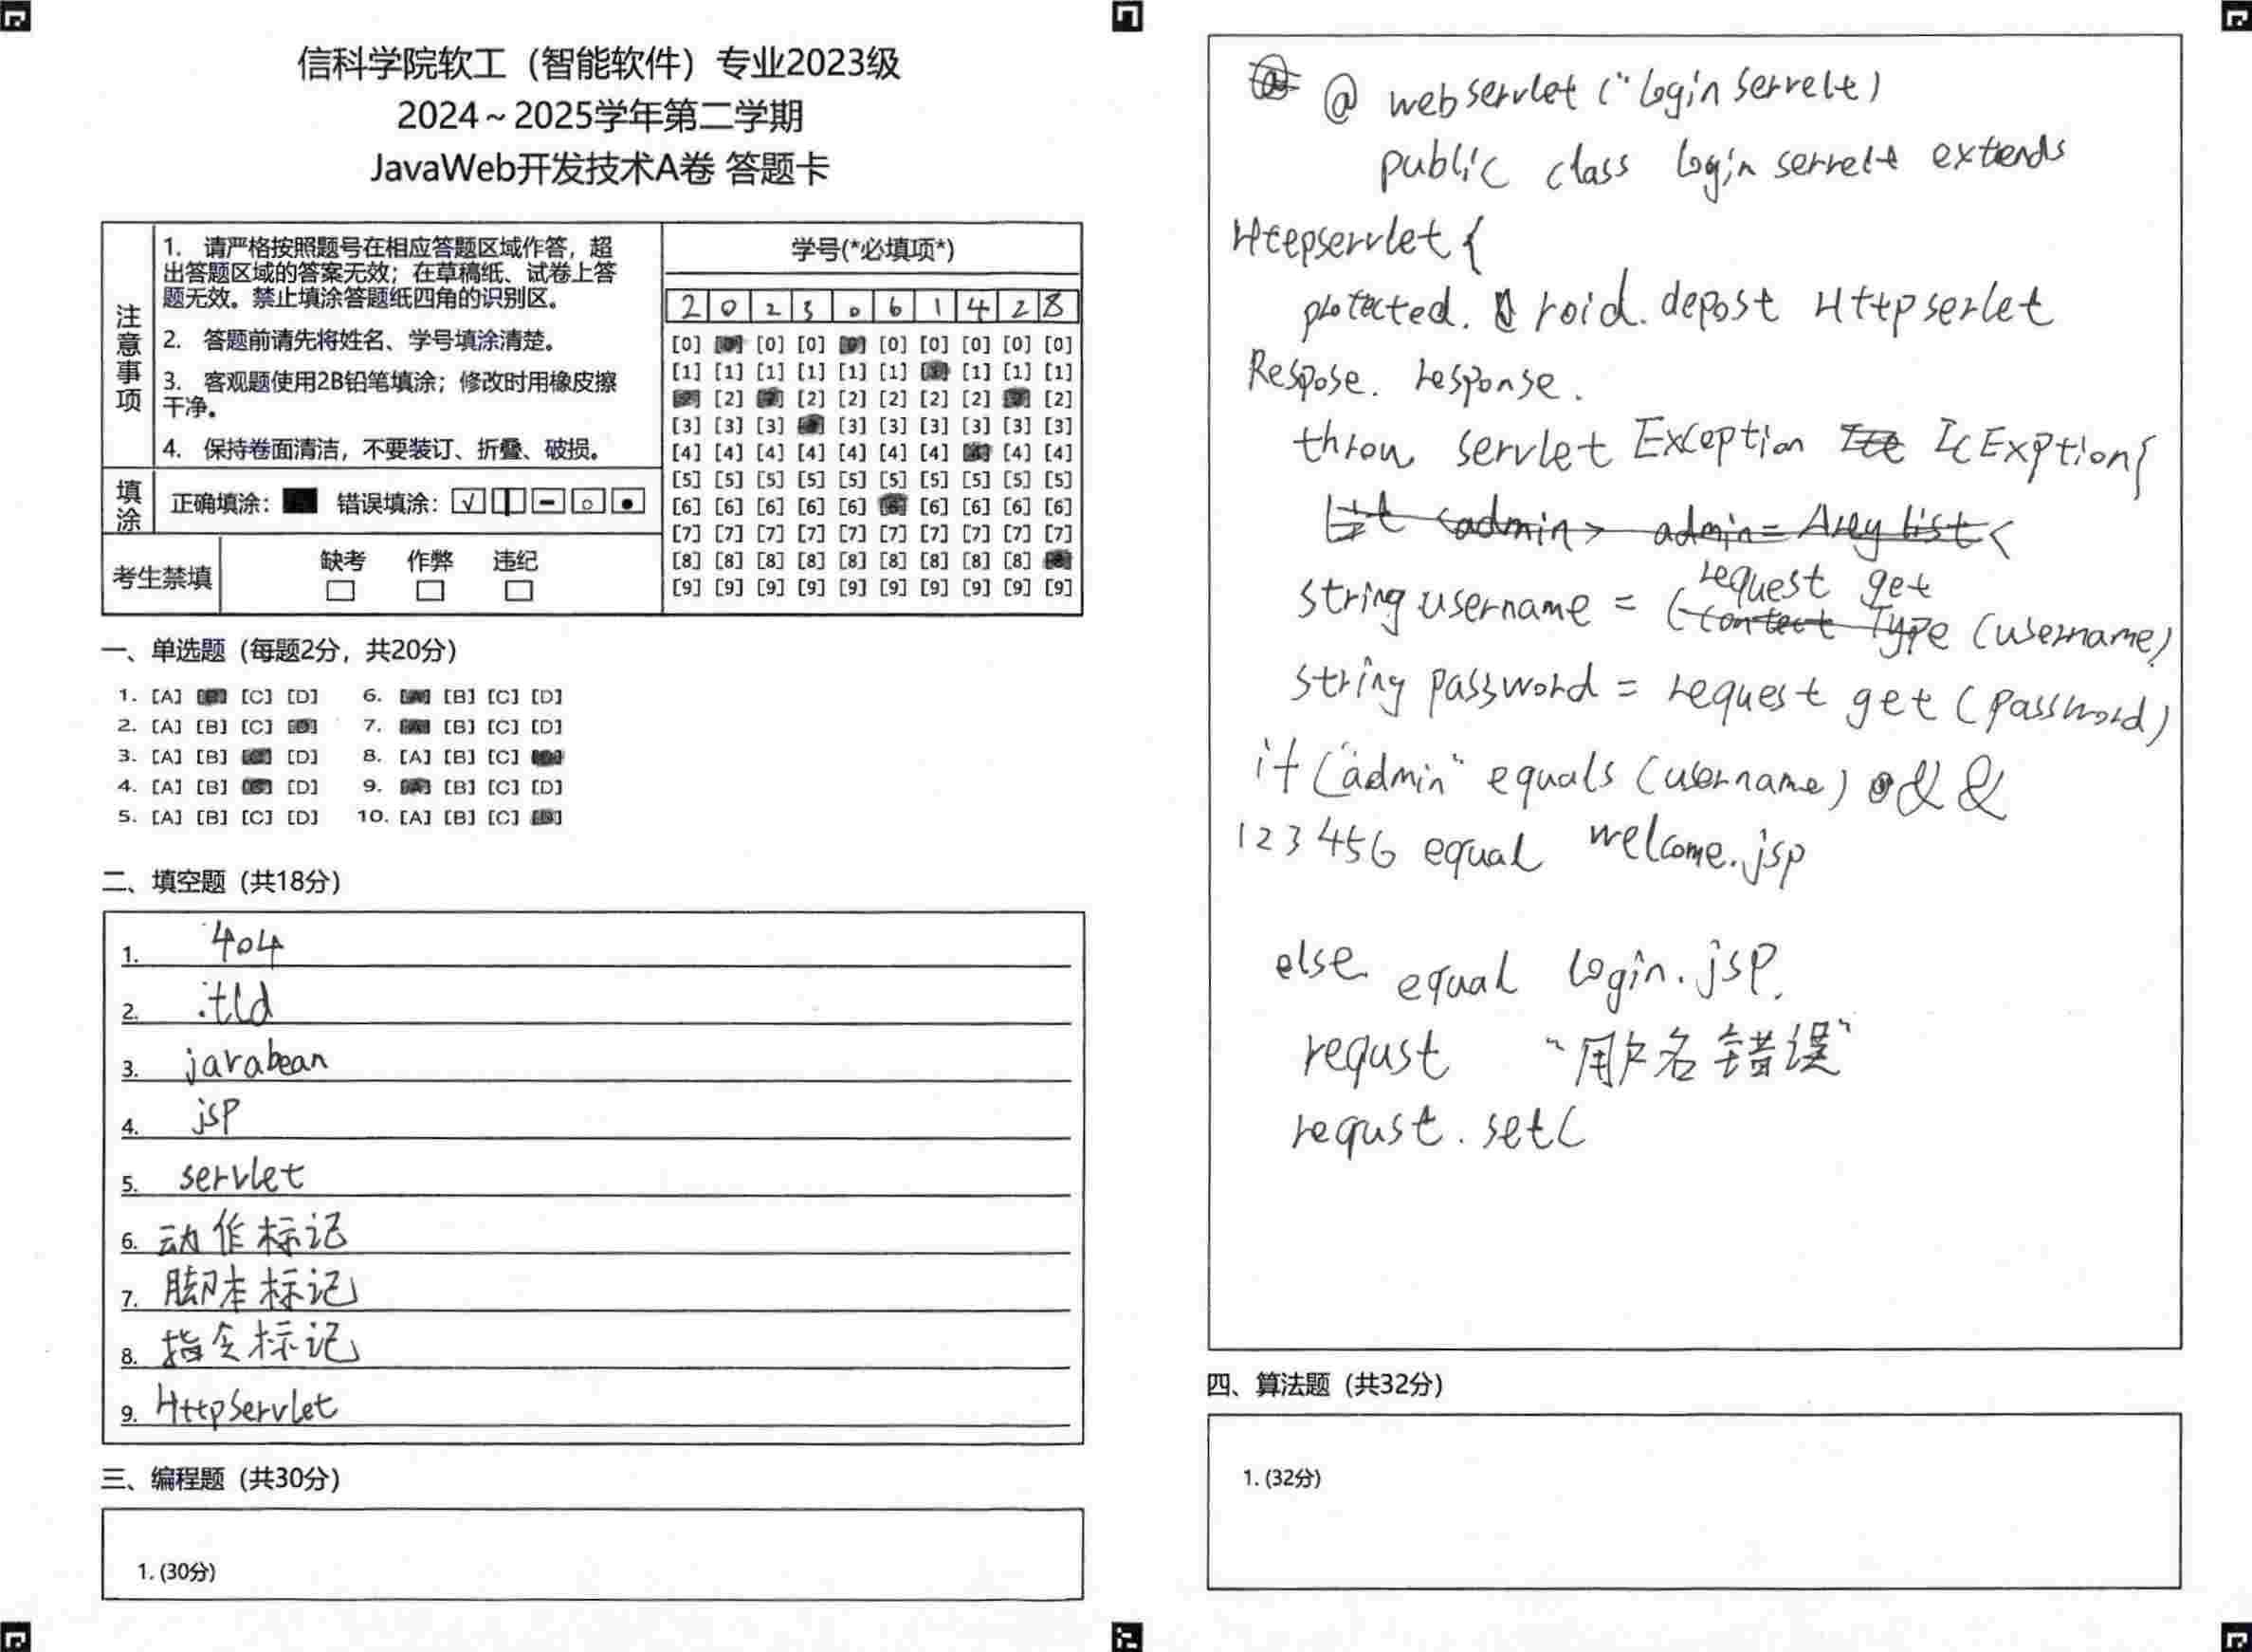 信科学院软工（智能软件）专业2023级
2024～2025学年第二学期
JavaWeb开发技术A卷 答题卡
注意事项
1. 请严格按照题号在相应答题区域作答，超
出答题区域的答案无效；在草稿纸、试卷上答
题无效。禁止填涂答题纸四角的识别区。
2. 答题前请先将姓名、学号填涂清楚。
3. 客观题使用2B铅笔填涂；修改时用橡皮擦
干净。
4. 保持卷面清洁，不要装订、折叠、破损。
填涂
正确填涂： 错误填涂：
考生禁填
缺考 作弊 违纪
学号(*必填项*)
2 0 2 3 0 6 1 4 2 8
[0] [0] [0] [0] [0] [0] [0] [0] [0] [0]
[1] [1] [1] [1] [1] [1] [1] [1] [1] [1]
[2] [2] [2] [2] [2] [2] [2] [2] [2] [2]
[3] [3] [3] [3] [3] [3] [3] [3] [3] [3]
[4] [4] [4] [4] [4] [4] [4] [4] [4] [4]
[5] [5] [5] [5] [5] [5] [5] [5] [5] [5]
[6] [6] [6] [6] [6] [6] [6] [6] [6] [6]
[7] [7] [7] [7] [7] [7] [7] [7] [7] [7]
[8] [8] [8] [8] [8] [8] [8] [8] [8] [8]
[9] [9] [9] [9] [9] [9] [9] [9] [9] [9]
一、单选题（每题2分，共20分）
1. [A] [B] [C] [D] 6. [A] [B] [C] [D]
2. [A] [B] [C] [D] 7. [A] [B] [C] [D]
3. [A] [B] [C] [D] 8. [A] [B] [C] [D]
4. [A] [B] [C] [D] 9. [A] [B] [C] [D]
5. [A] [B] [C] [D] 10. [A] [B] [C] [D]
二、填空题（共18分）
1. 404
2. .tld
3. javabean
4. jsp
5. servlet
6. 动作标记
7. 脚本标记
8. 指令标记
9. HttpServlet
三、编程题（共30分）
1. (30分)
@ webservlet ("loginserrelt)
public class loginserrelt extends
Httpservlet {
protected. roid. depost Httpserlet
Respose. response.
throw servlet Exception IcExption{
List <admin> admin = Arey list <
request get
string username = (content Type (username)
string password = request get (password)
if ("admin" equals (username) &&
123456 equal welcome.jsp
else equal login.jsp.
requst "用户名错误"
requst. set(
四、算法题（共32分）
1. (32分)